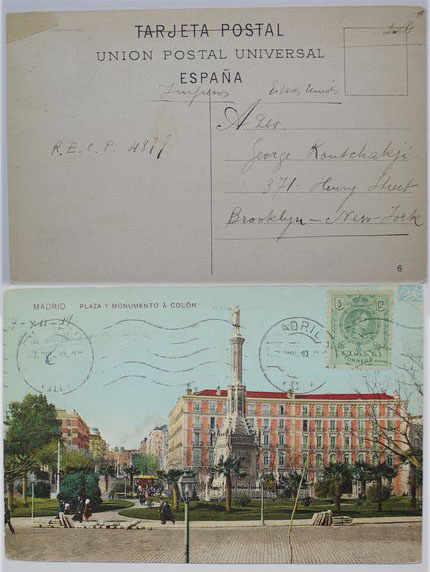 TARJETA POSTAL
UNION POSTAL UNIVERSAL
ESPAÑA
Estados Unidos
R.E.C.P. 4899
A Dr.
George Koutchakji
371 Henry Street
Brooklyn - New-York
6
MADRID PLAZA Y MONUMENTO Á COLÓN
7-XII-
5 Cs
CORREOS